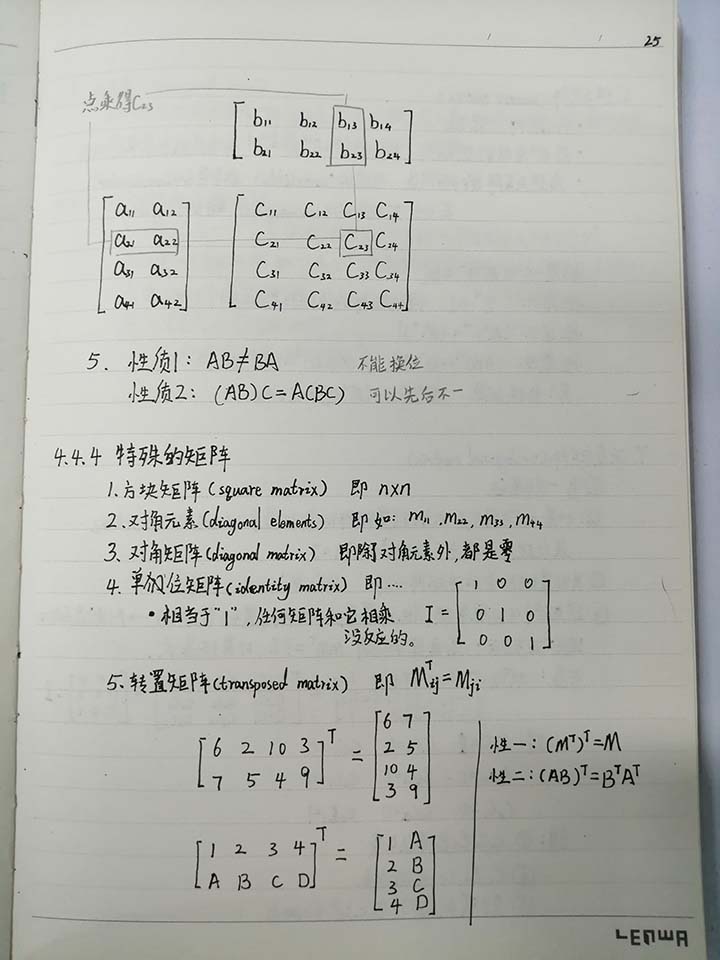 25
点乘得C₂₃
b₁₁ b₁₂ b₁₃ b₁₄
b₂₁ b₂₂ b₂₃ b₂₄
a₁₁ a₁₂ C₁₁ C₁₂ C₁₃ C₁₄
a₂₁ a₂₂ C₂₁ C₂₂ C₂₃ C₂₄
a₃₁ a₃₂ C₃₁ C₃₂ C₃₃ C₃₄
a₄₁ a₄₂ C₄₁ C₄₂ C₄₃ C₄₄
5. 性质1: AB≠BA 不能换位
性质2: (AB)C=A(BC) 可以先后不一
4.4.4 特殊的矩阵
1. 方块矩阵(square matrix) 即 n×n
2. 对角元素(diagonal elements) 即如: m₁₁、m₂₂、m₃₃、m₄₄
3. 对角矩阵(diagonal matrix) 即除了对角元素外,都是零
4. 单位矩阵(identity matrix) 即····
•相当于"1",任何矩阵和它相乘
没反应的。
I =
1 0 0
0 1 0
0 0 1
5. 转置矩阵(transposed matrix) 即 Mᵀij=Mji
6 2 10 3
7 5 4 9
T
=
6 7
2 5
10 4
3 9
性一: (Mᵀ)ᵀ=M
性二: (AB)ᵀ=BᵀAᵀ
1 2 3 4
A B C D
T
=
1 A
2 B
3 C
4 D
LENWA